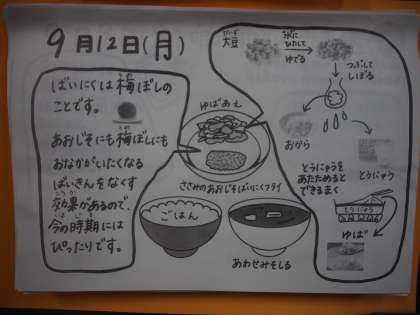 9月12日(月)
ばいにくは梅ぼしの
ことです。
あおじそにも梅ぼしにも
おなかがいたくなる
ばいきんをなくす
効果があるので、
今の時期には
ぴったりです。
ゆばあえ
ささみのあおじそばいにくフライ
ごはん
あわせみそしる
だいず
大豆
水に
ひたして
ゆでる
つぶして
しぼる
おから
とうにゅう
とうにゅうを
あたためると
できるまく
とうにゅう
ゆば